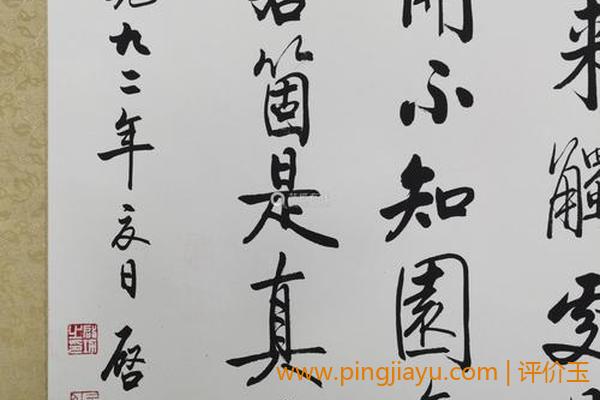 來觸處
不知園
箇是真
九二年夏日 啓
www.pingjiayu.com | 评价玉